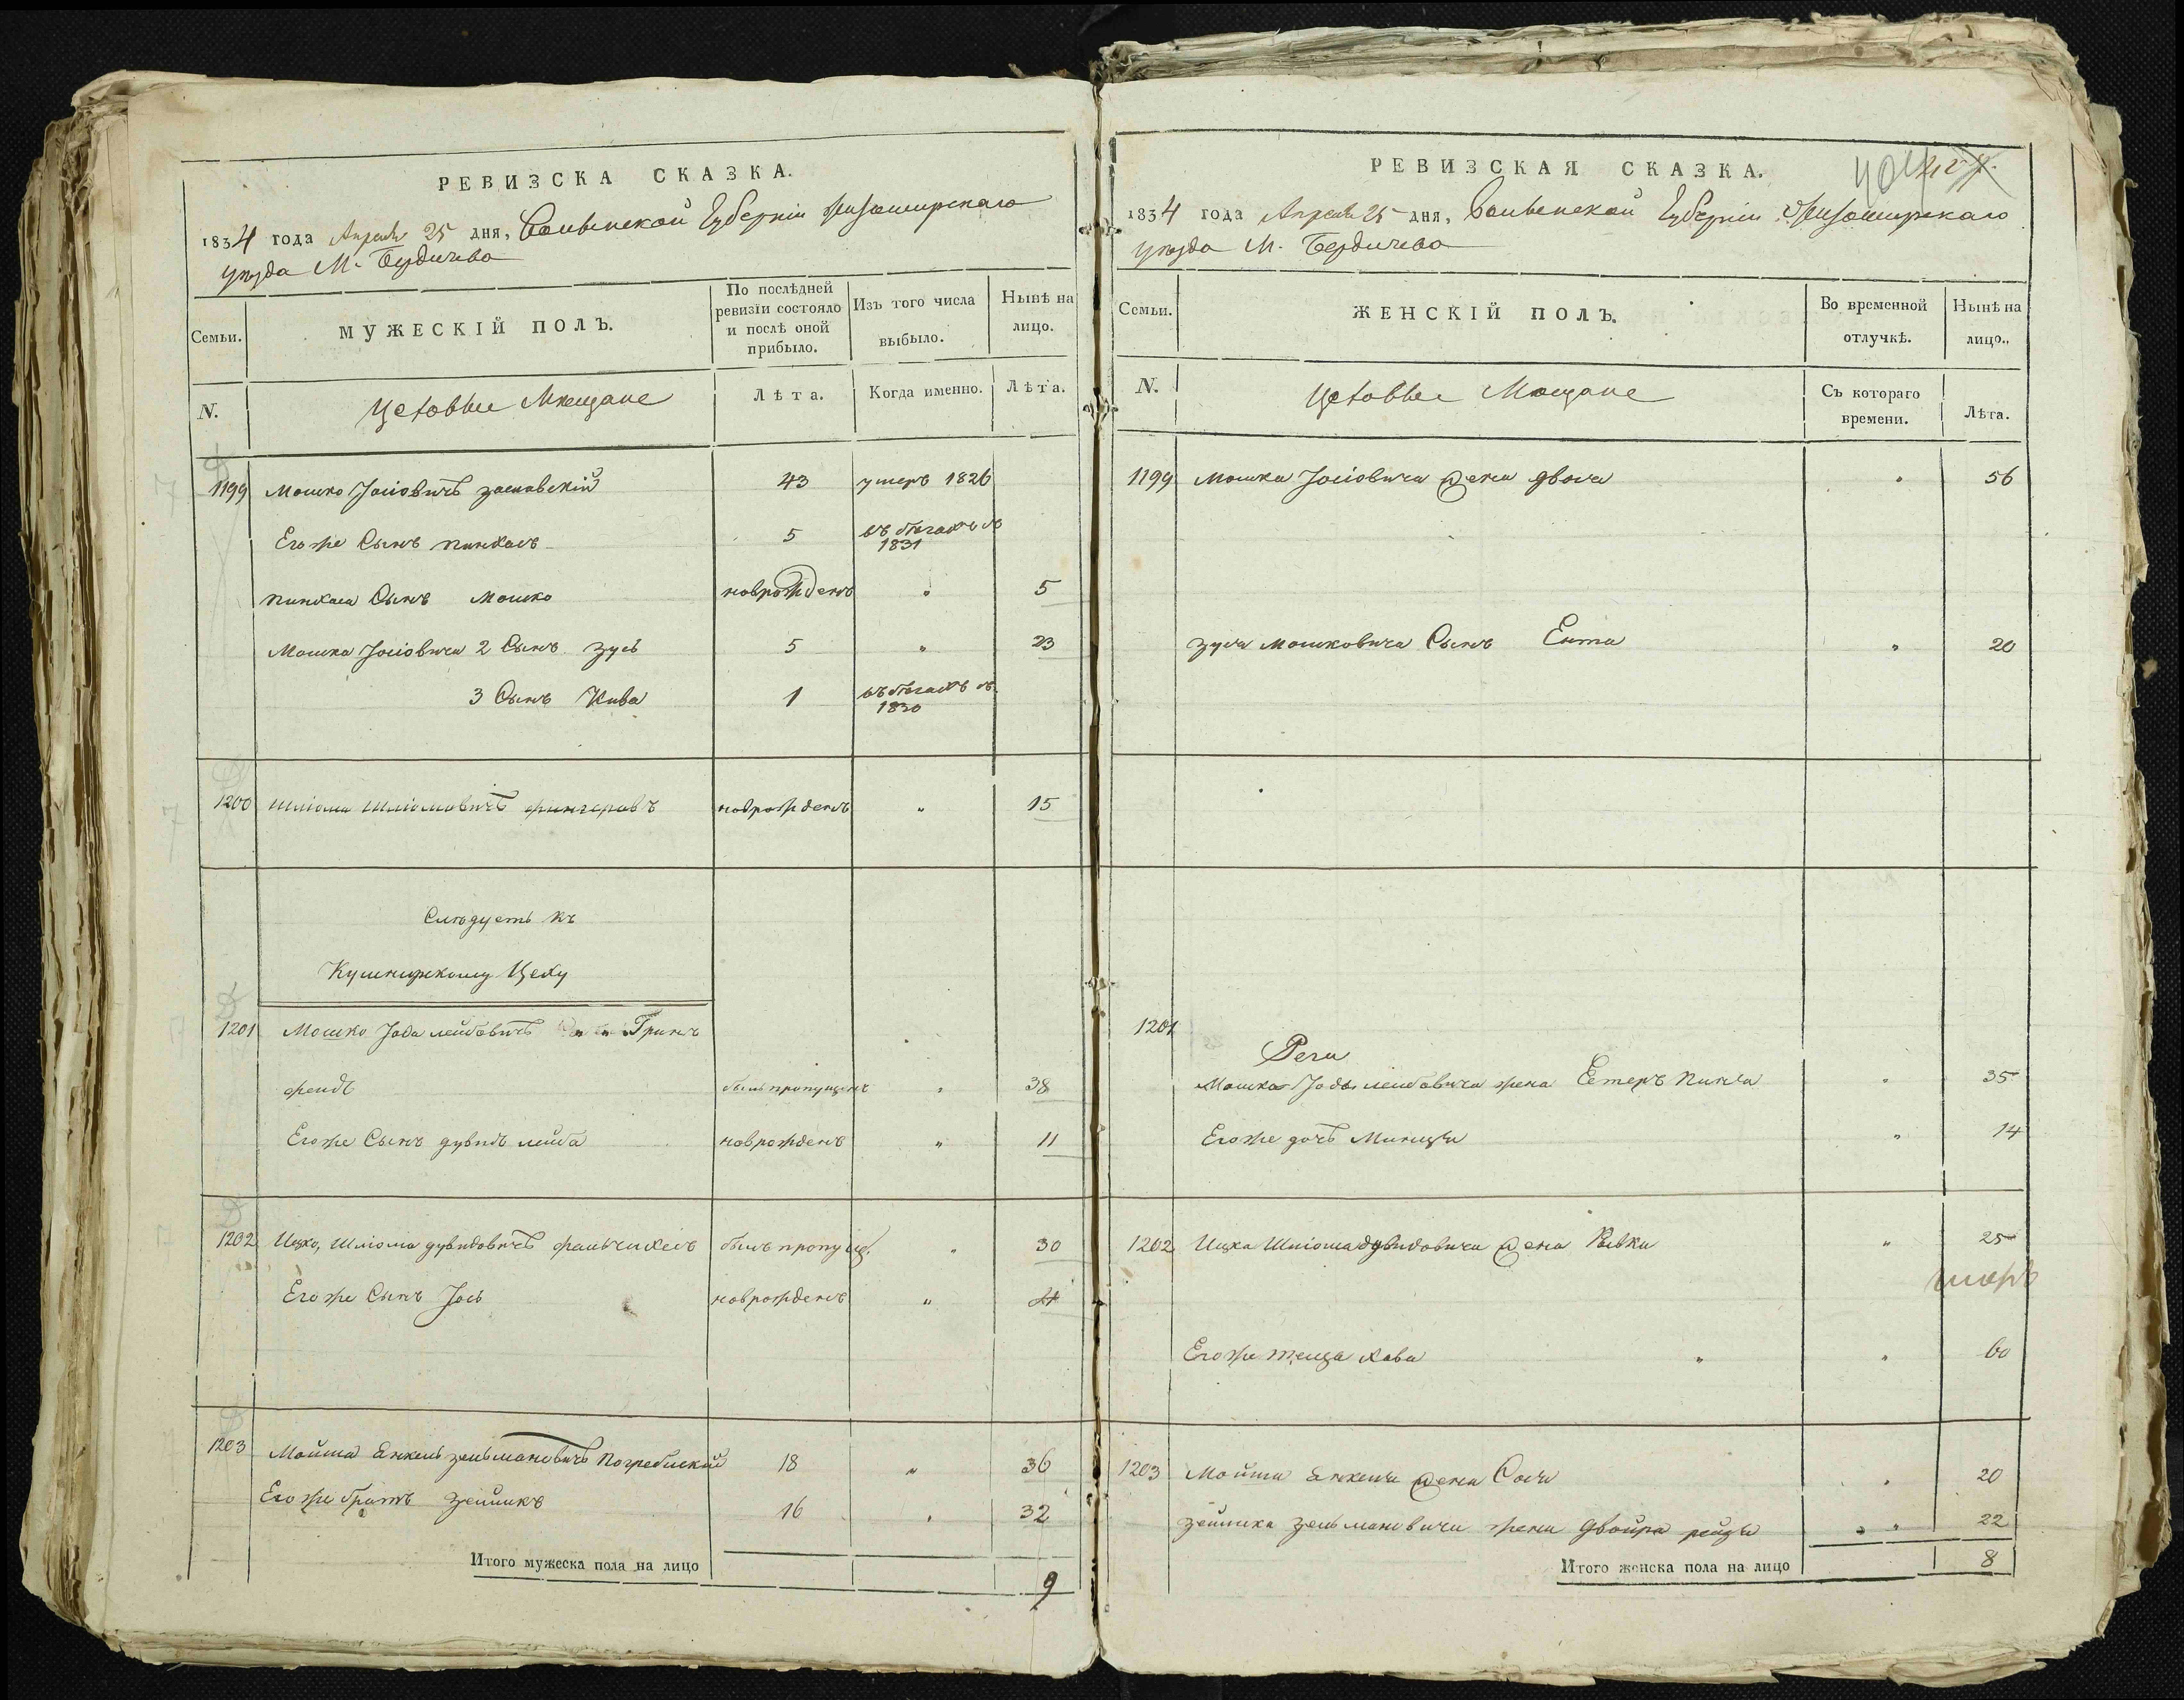 РЕВИЗСКА СКАЗКА.
1834 года Апреля 25 дня, Волынской Губерніи Житомирскаго
уезда М. Бердичева
Семьи.
МУЖЕСКІЙ ПОЛЪ.
По послѣдней ревизіи состояло и послѣ оной прибыло.
Изъ того числа выбыло.
Нынѣ на лицо.
N.
Цеховые Мещане
Лѣта.
Когда именно.
Лѣта.
1199 Мошко Іосіовичъ заславскій 43 умеръ 1826
Его же Сынъ пинхасъ 5 въ бегахъ съ 1831
пинхаса Сынъ Мошко новрожденъ " 5
Мошка Іосіовича 2 Сынъ Зусь 5 " 23
3 Сынъ Кива 1 въ бегахъ съ 1830
1200 Шліома Шліомовичъ новрожденъ " 15
Следуетъ къ
Кушнирскому Цеху
1201 Мошко Іода лейбовичъ Грин
фендъ былъ пропущенъ " 38
Его же Сынъ дувидъ лейба новрожденъ " 11
1202 Ицко, Шліома дувидовичъ былъ пропущ. " 30
Его же Сынъ Іось новрожденъ "
1203 Мойша Янкель зельмановичъ Погребиский 18 " 36
Его же братъ зейликъ 16 " 32
Итого мужеска пола на лицо 9
РЕВИЗСКАЯ СКАЗКА.
404
1834 года Апреля 25 дня, Волынской Губерніи Житомирскаго
уезда М. Бердичева
Семьи.
ЖЕНСКІЙ ПОЛЪ.
Во временной отлучкѣ.
Нынѣ на лицо.
N.
Цеховые Мещане
Съ котораго времени.
Лѣта.
1199 Мошка Іосіовича жена двося " 56
зуся мошковича Сынъ Ента " 20
1201
Мошка Іоды лейбовича жена Естеръ " 35
Его же дочь Минця " 14
1202 Ицка Шліома дувидовича жена Ривка " 25
Его же теща хава " " 60
1203 Мойши Янкеля жена Сося " 20
зейлика зельмановича жена двойра рейзя " " 22
Итого женска пола на лицо 8